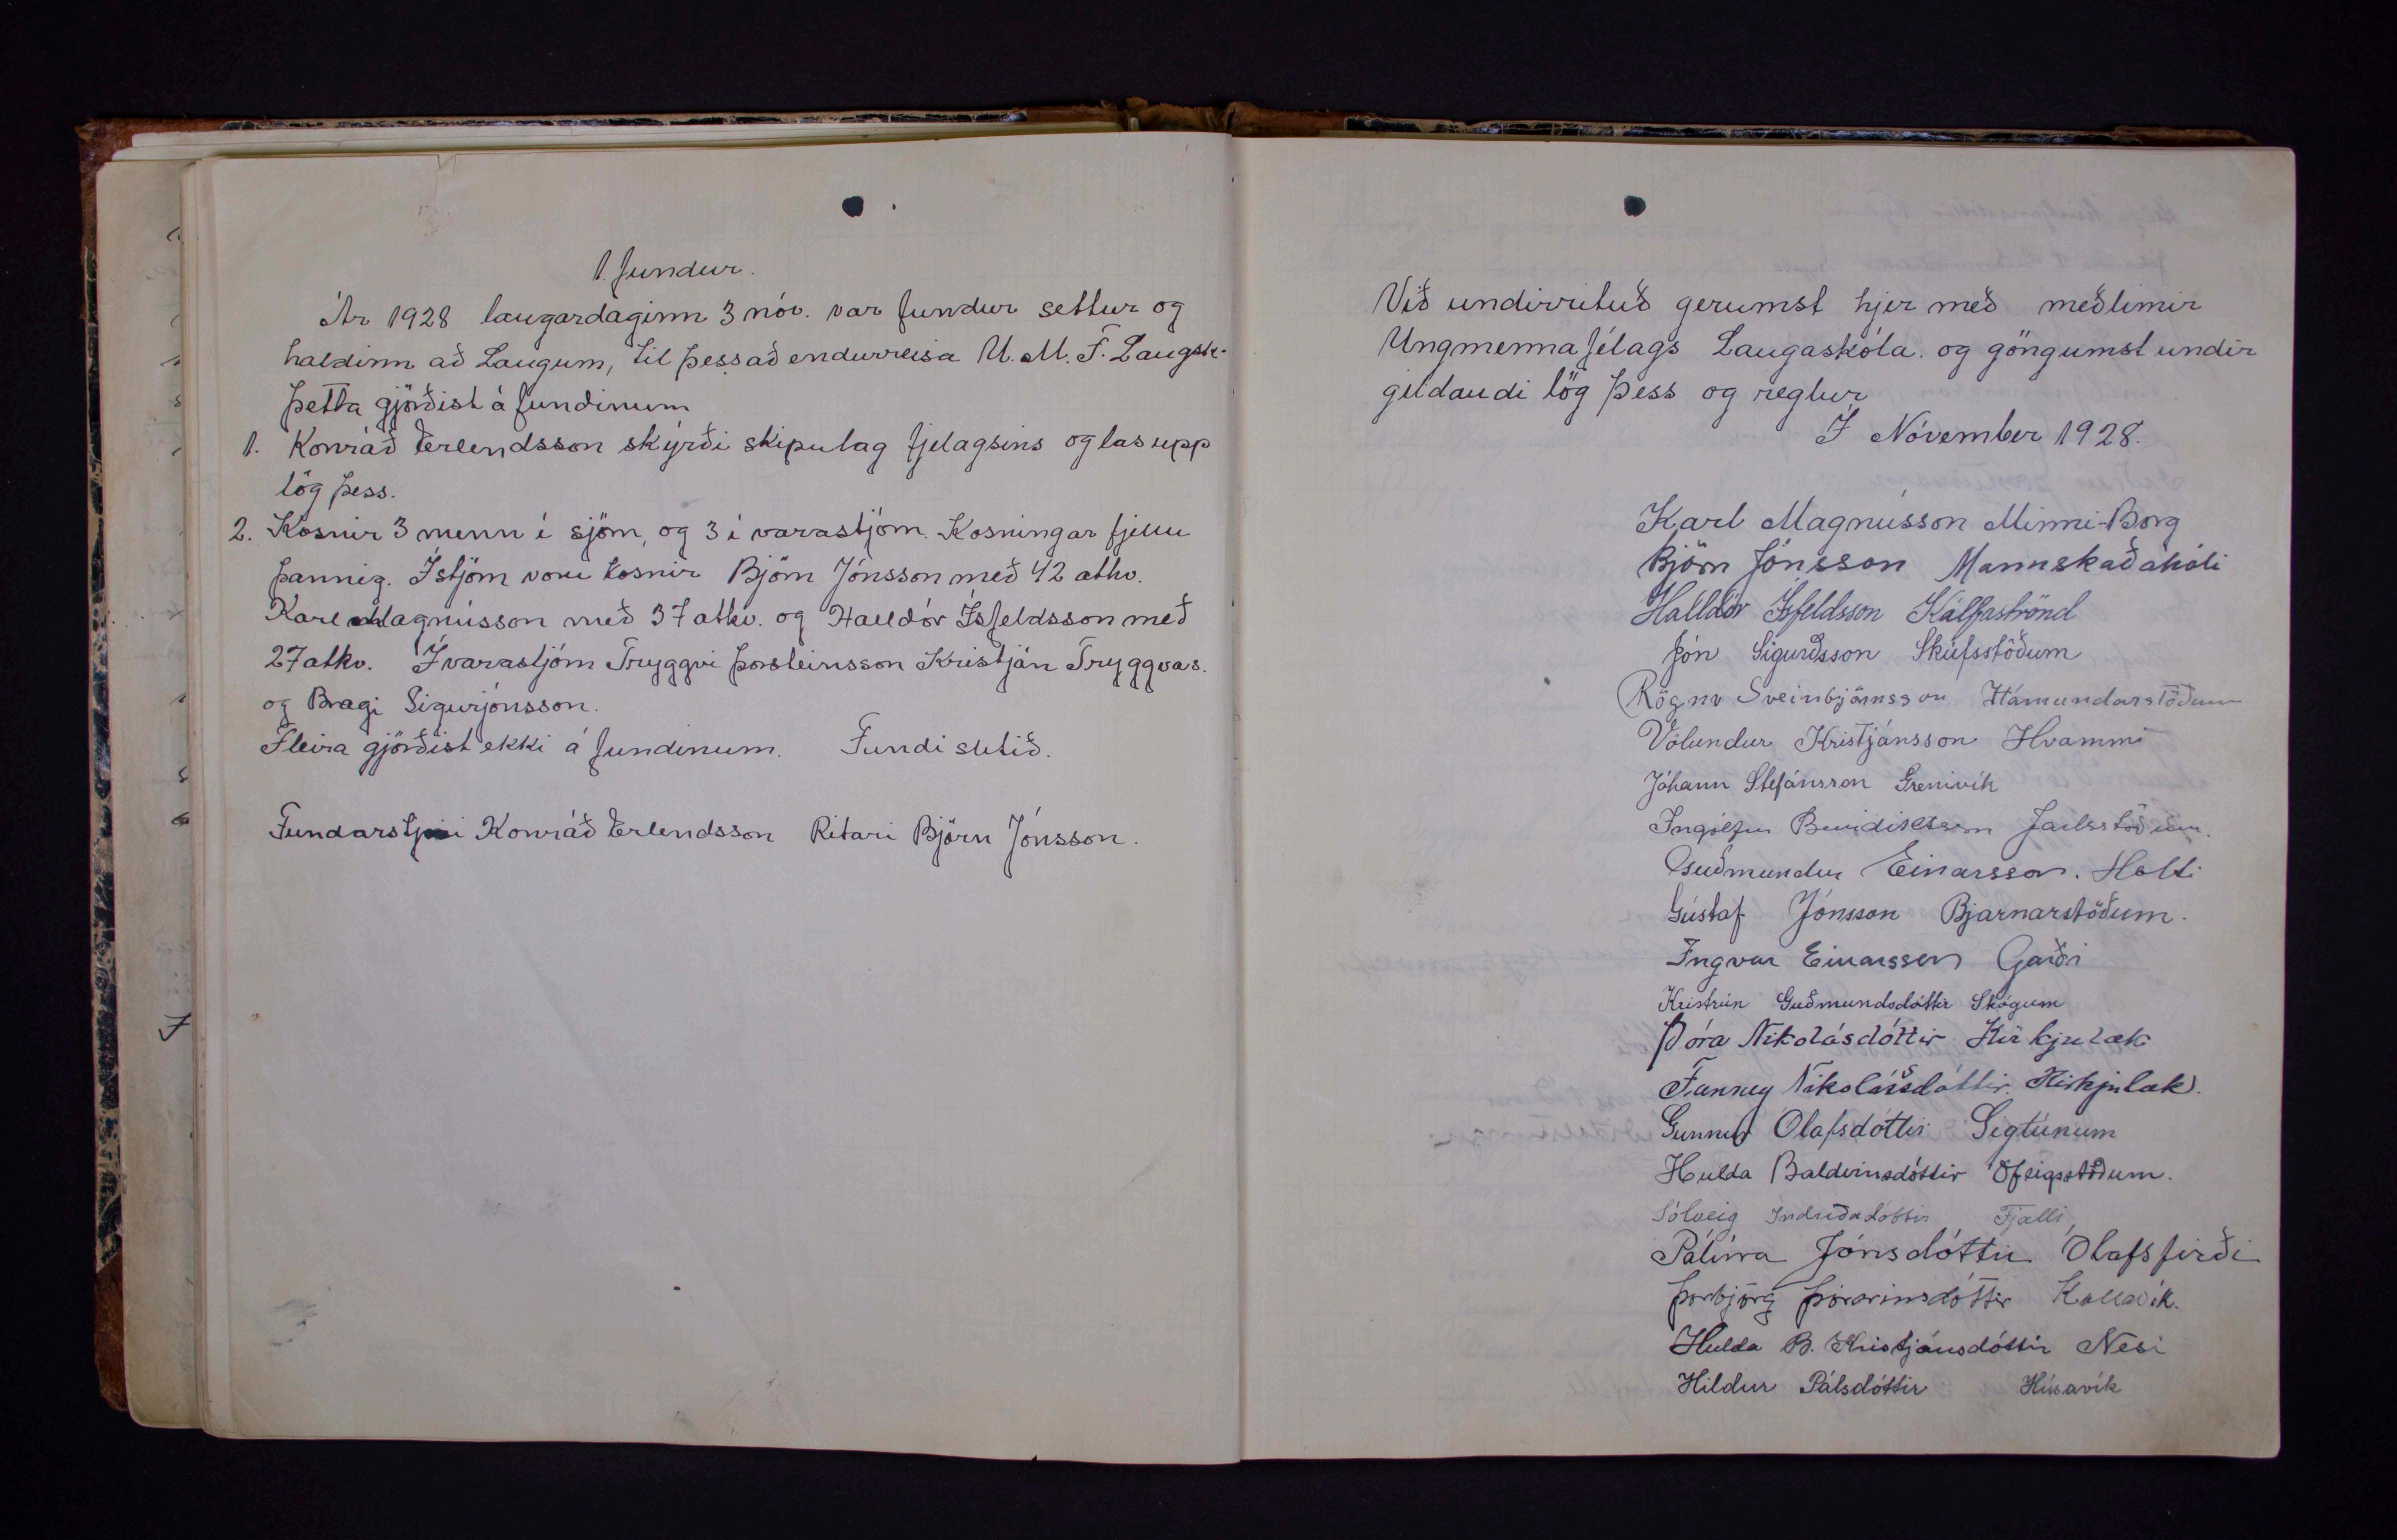 1. fundur.
Ár 1928 laugardaginn 3 nóv. var fundur settur og
haldinn að Laugum, til þess að endurreisa U. M. F. Laugsk.
Þetta gjörðist á fundinum
1. Konráð Erlendsson skýrði skipulag fjelagsins og las upp
lög þess.
2. Kosnir 3 menn í sjórn, og 3 í varastjórn. Kosningar fjellu
þannig. Í stjórn voru kosnir Björn Jónsson með 42 atkv.
Karl Magnússon með 37 atkv. og Halldór Ísfeldsson með
27 atkv. Í varastjórn Tryggvi Þorsteinsson Kristján Tryggvas.
og Bragi Sigurjónsson.
Fleira gjörðist ekki á fundinum. Fundi slitið.
Fundarstjóri Konráð Erlendsson Ritari Björn Jónsson.
Við undirrituð gerumst hjer með meðlimir
Ungmennafélags Laugaskóla. og göngumst undir
gildandi lög þess og reglur
Í Nóvember 1928.
Karl Magnússon Minni-Borg
Björn Jónsson Mannskaðahóli
Halldór Ísfeldsson Kálfaströnd
Jón Sigurðsson Skúfsstöðum
Rögnv Sveinbjörnsson Hámundarstöðum
Völundur Kristjánsson Hvammi
Jóhann Stefánsson Grenivík
Ingólfur Benidiktsson Jarlsstöðum.
Guðmundur Einarsson. Holti
Gústaf Jónsson Bjarnarstöðum.
Ingvar Einarsson Garði
Kristrún Guðmundsdóttir Skógum
Þóra Nikolásdóttir Kirkjulæk
Fanney Nikolássdóttir. Kirkjulæk.
Gunnur Ólafsdóttir Sigtúnum
Hulda Baldvinsdóttir Ófeigsstöðum.
Sólveig Indriðadóttir Fjalli
Pálína Jónsdóttir Ólafsfirði
Þorbjörg Þórarinsdóttir Kollavík.
Hulda B. Kristjánsdóttir Nesi
Hildur Pálsdóttir Húsavík